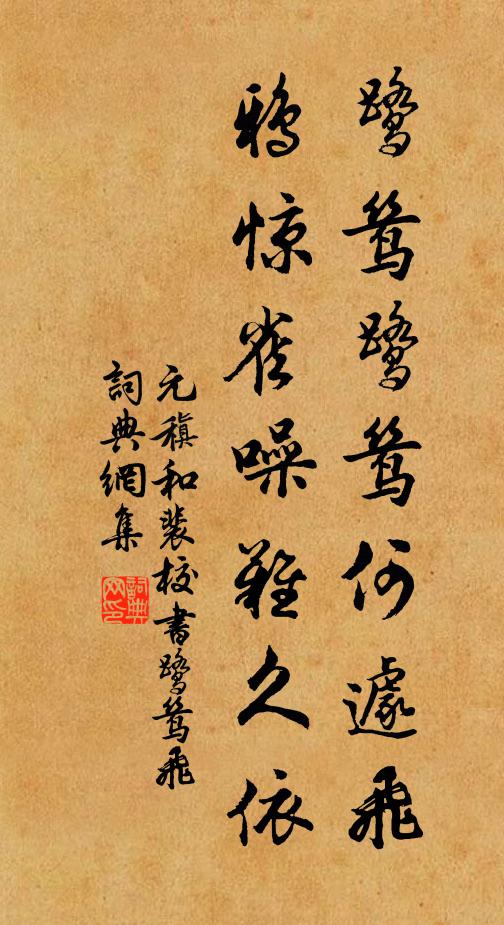 鹭鸶鹭鸶何遽飛
鸦惊雀噪難久依
元稹和裴校書鹭鸶飛
詞典網集
詞典网印